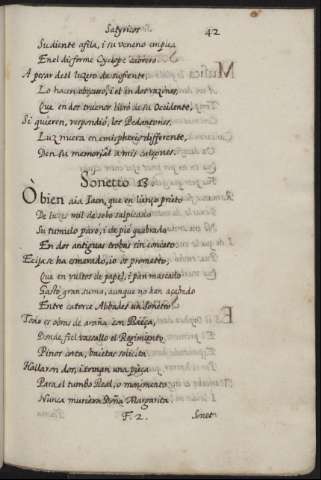 Satyricos 42
Su diente afila, i su veneno emplea
En el disforme Cyclope cabrero.
A pesar del luzero de su frente,
Lo hacen obscuro, i el en dos razones,
Que en dos truenos libró de su Occidente,
Si quieren, respondió, los Pedantones,
Luz nueva en emispherio differente,
Den su memorial a mis calzones.
Sonetto 13
O bien aia Iaen, que en lienço prieto
De luzes mil de sebo salpicado
Su tumulo paró, i de pie quebrado
En dos antiguas trobas sin conceto.
Ecija se ha esmerado, io os prometto,
Que en bultos de papel, i pan mascado
Gastó gran suma, aunque no han acabado
Entre catorce Abbades un Sonetto.
Todo es obras de araña con Baeça,
Donde fiel vassallo el Regimiento
Pinos corta, baietas solicita.
Hallaron dos, i toman una pieça
Para el tumbo Real, o monimento
Nunca muriera Doña Margarita
F. 2. Sonet